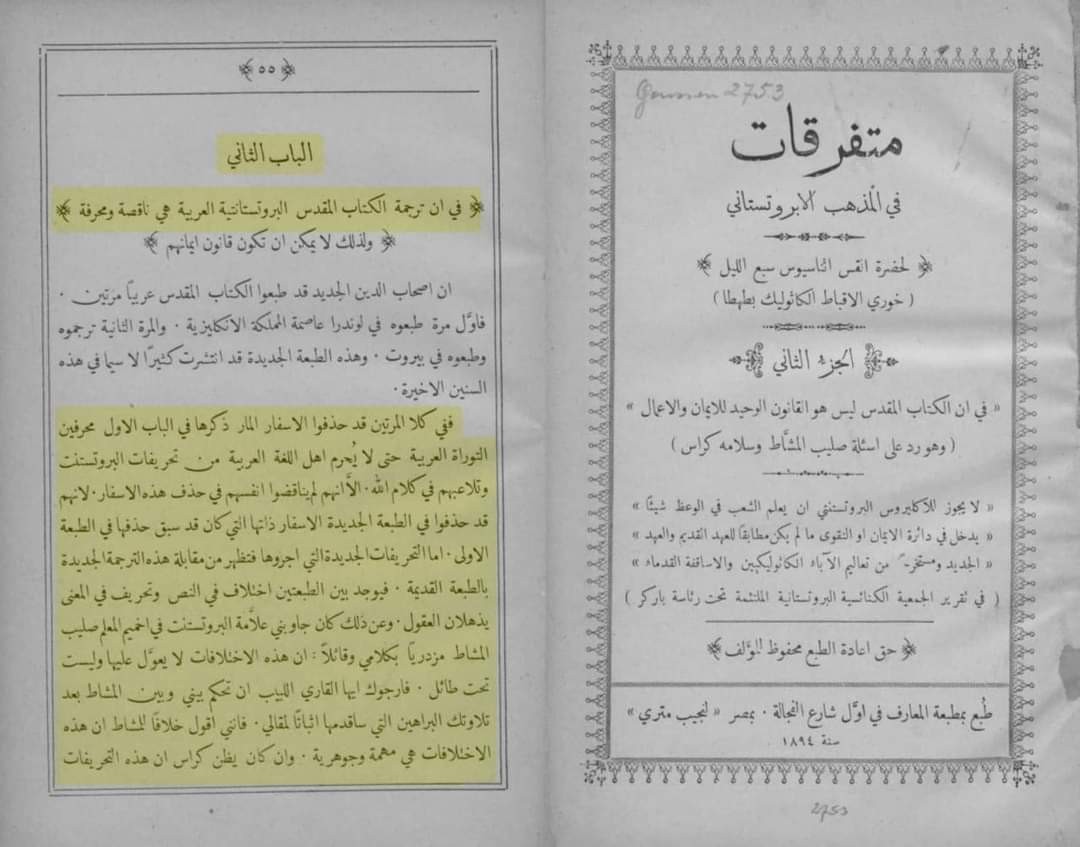 Goussen 2753
متفرقات
في المذهب الابروتستاني
لحضرة القس اثناسيوس سبع الليل
( خوري الاقباط الكاثوليك بطهطا )
الجزء الثاني
« في ان الكتاب المقدس ليس هو القانون الوحيد للايمان والاعمال »
( وهو رد على اسئلة صليب المشَّاط وسلامه كراس )
« لا يجوز للاكليروس البروتستنتي ان يعلم الشعب في الوعظ شيئًا »
« يدخل في دائرة الايمان او التقوى ما لم يكن مطابقًا للعهد القديم والعهد »
« الجديد ومستخرجـً من تعاليم الآباء الكاثوليكيين والاساقفة القدماء »
( في تقرير الجمعية الكنائسية البروتستانية الملتئمة تحت رئاسة باركر )
حق اعادة الطبع محفوظ للمؤلف
طُبع بمطبعة المعارف في اوَّل شارع الفجالة . بمصر « لنجيب متري »
سنة ١٨٩٤
2753
٥٥
الباب الثاني
في ان ترجمة الكتاب المقدس البروتستانتية العربية هي ناقصة ومحرفة
ولذلك لا يمكن ان تكون قانون ايمانهم
ان اصحاب الدين الجديد قد طبعوا الكتاب المقدس عربيًا مرتين .
فاوَّل مرة طبعوه في لوندرا عاصمة المملكة الانكليزية . والمرة الثانية ترجموه
وطبعوه في بيروت . وهذه الطبعة الجديدة قد انتشرت كثيرًا لا سيما في هذه
السنين الاخيرة .
ففي كلا المرتين قد حذفوا الاسفار المار ذكرها في الباب الاول محرفين
التوراة العربية حتى لا يُحرم اهل اللغة العربية من تحريفات البروتستنت
وتلاعبهم في كلام الله . الَّا انهم لم يناقضوا انفسهم في حذف هذه الاسفار . لانهم
قد حذفوا في الطبعة الجديدة الاسفار ذاتها التي كان قد سبق حذفها في الطبعة
الاولى . اما التحريفات الجديدة التي اجروها فتظهر من مقابلة هذه الترجمة الجديدة
بالطبعة القديمة . فيوجد بين الطبعتين اختلاف في النص وتحريف في المعنى
يذهلان العقول . وعن ذلك كان جاوبني علَّامة البروتستنت في اخميم المعلم صليب
المشاط مزدريًا بكلامي وقائلاً : ان هذه الاختلافات لا يعوَّل عليها وليست
تحت طائل . فارجوك ايها القاري اللبيب ان تحكم بيني وبين المشاط بعد
تلاوتك البراهين التي ساقدمها اثباتًا لمقالي . فانني اقول خلافًا للمشاط ان هذه
الاختلافات هي مهمة وجوهرية . وان كان يظن كراس ان هذه التحريفات